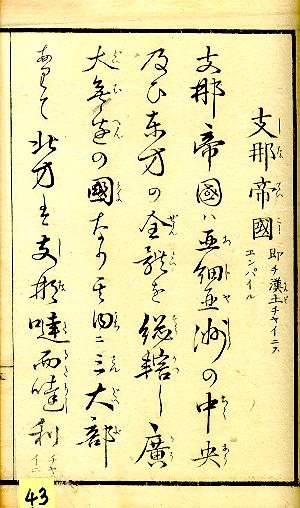 支那帝國 即チ漢土チャイニス
エンパイル
支那帝國ハ亜細亜洲の中央
及ひ東方の全體を総轄し廣
大無邊の國なり其内ニ三大部
ありて北方を支那噠而噠利 チャイニ
43